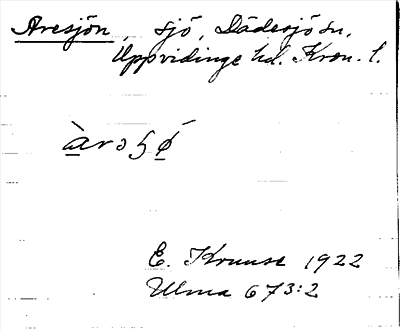 Aresjön, sjö, Dädesjö sn,
Uppvidinge hd. Kron. l.
àrɔʃǿ
E. Kruuse 1922
Ulma 673:2